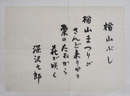 楢山ぶし
楢山まつりが
三度来りゃよ
栗のたねから
花が咲く
深沢七郎